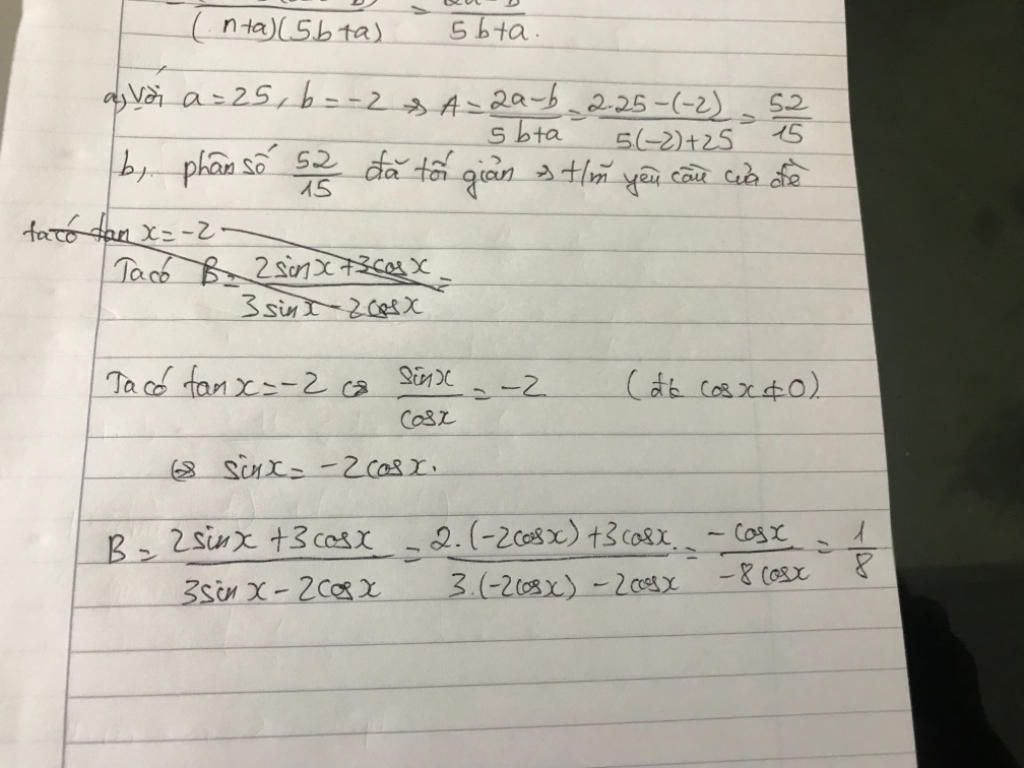 (n+a)(5b+a) = 5b+a.
a, Với a = 25, b = -2 → A = (2a-b)/(5b+a) = (2.25-(-2))/(5.(-2)+25) = 52/15
b, phân số 52/15 đã tối giản → t/m yêu cầu của đề
ta có tan x = -2
Ta có B = (2sinx+3cosx)/(3sinx-2cosx) =
Ta có tan x = -2 ⇔ sinx/cosx = -2 (đk cosx ≠ 0)
⇔ sinx = -2cosx.
B = (2sinx+3cosx)/(3sinx-2cosx) = (2.(-2cosx)+3cosx.)/(3.(-2cosx)-2cosx) = (-cosx)/(-8cosx) = 1/8